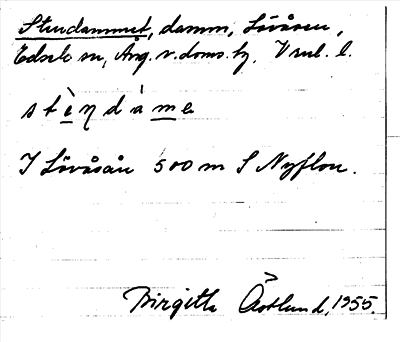 Stendammet, damm, Lövåsen,
Edsele sn, Ång. v. doms. hg, Vnl. l.
stèndàme
I Lövåsån 500 m S Nyflon.
Birgitta Östlund, 1955.